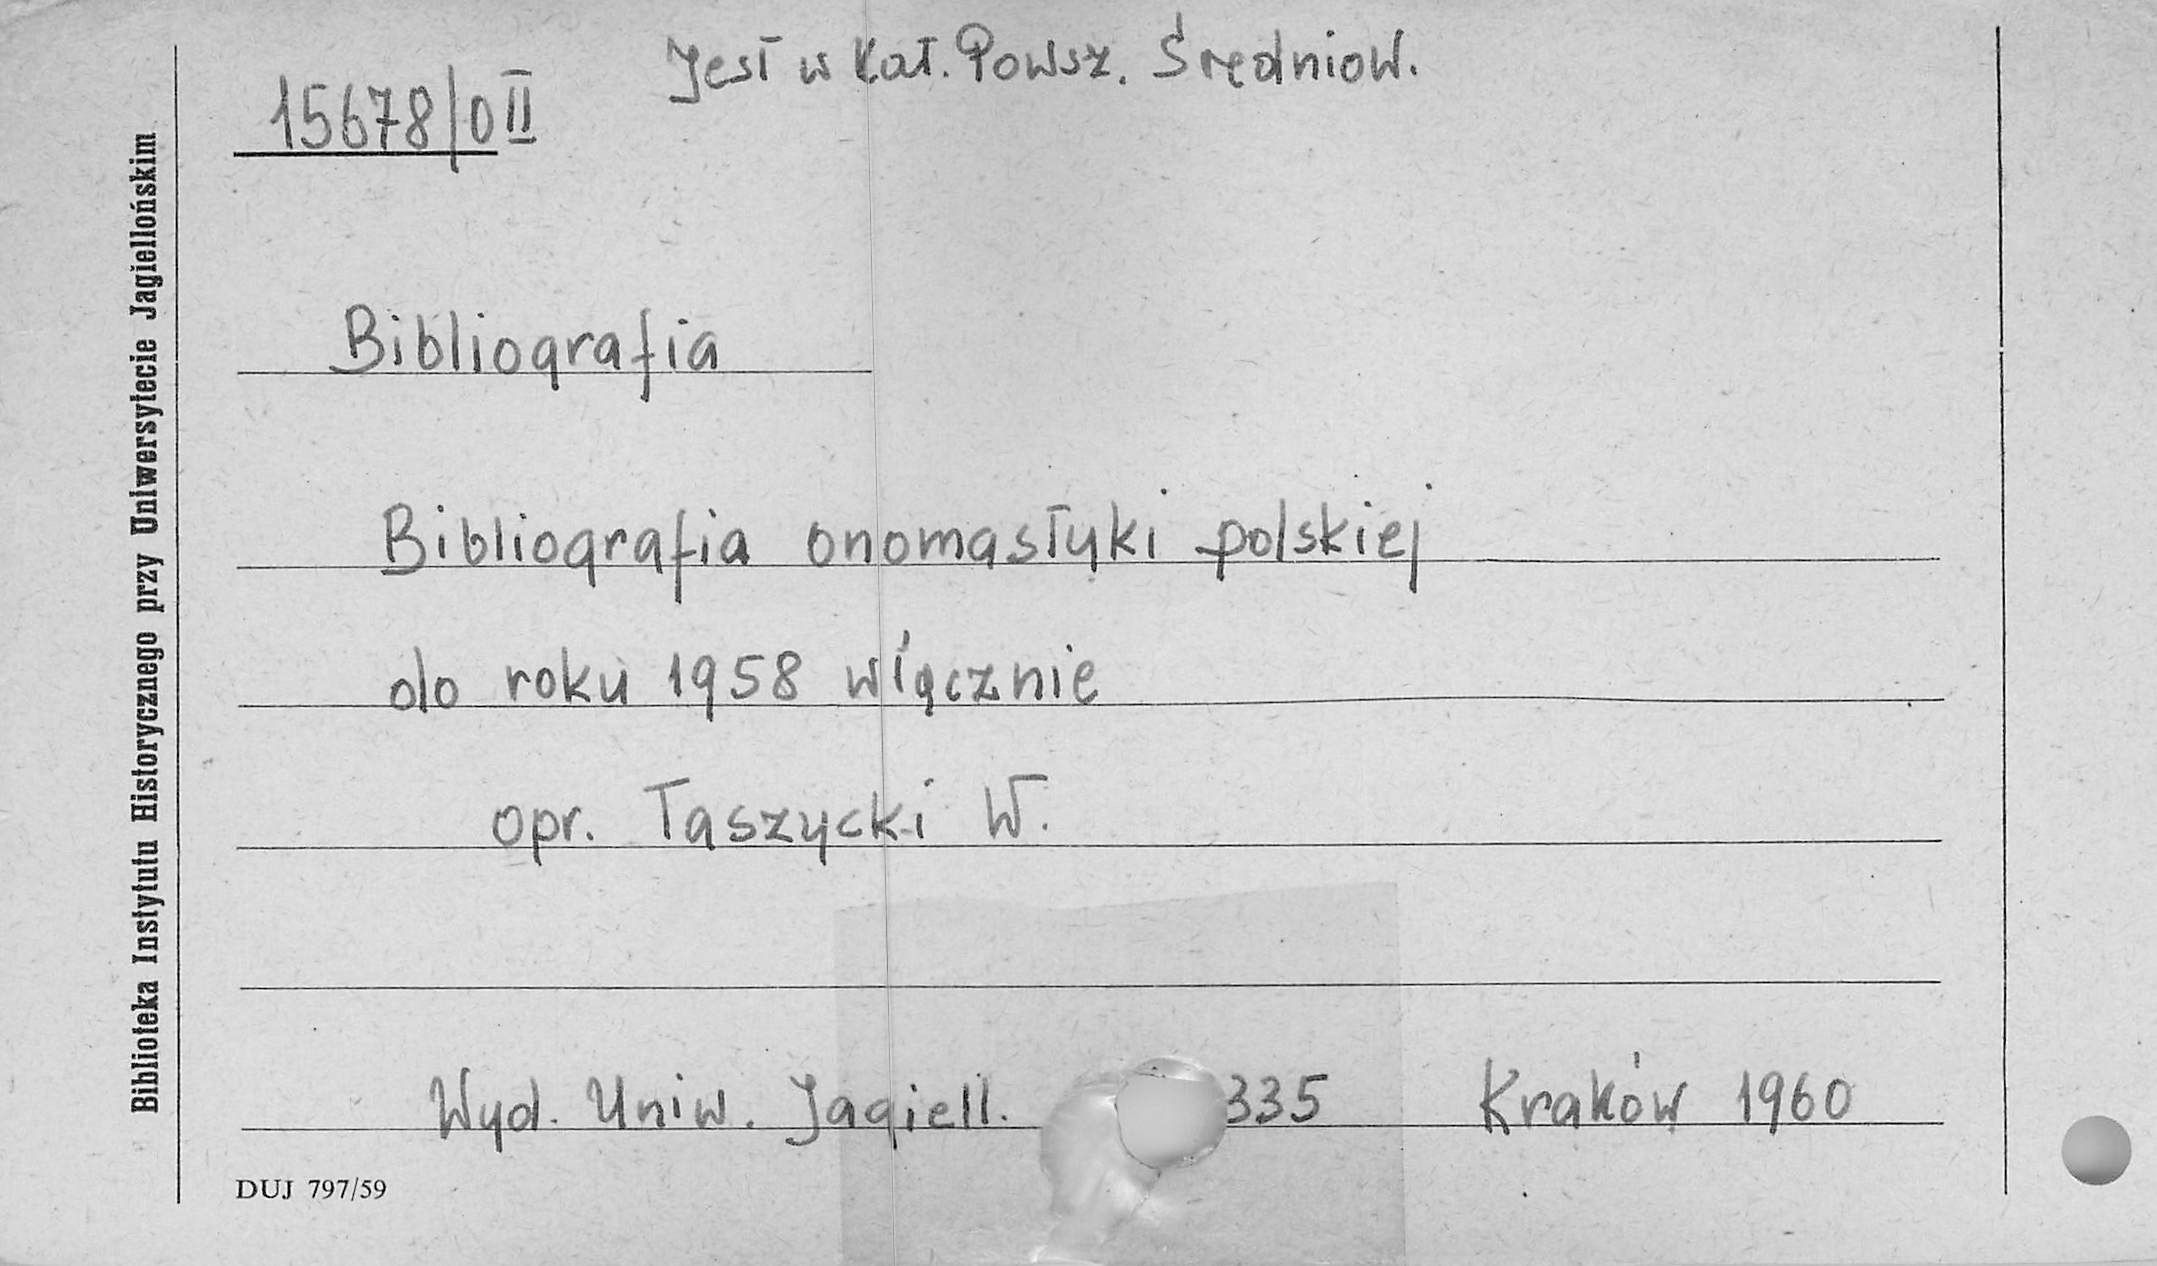 Jest w Kat. Powsz. Średniow.
15678/0 II
Bibliografia
Bibliografia onomastyki polskiej
do roku 1958 włącznie
opr. Taszycki W.
Wyd. Uniw. Jagiell. 335 Kraków 1960
DUJ 797/59
Biblioteka Instytutu Historycznego przy Uniwersytecie Jagiellońskim